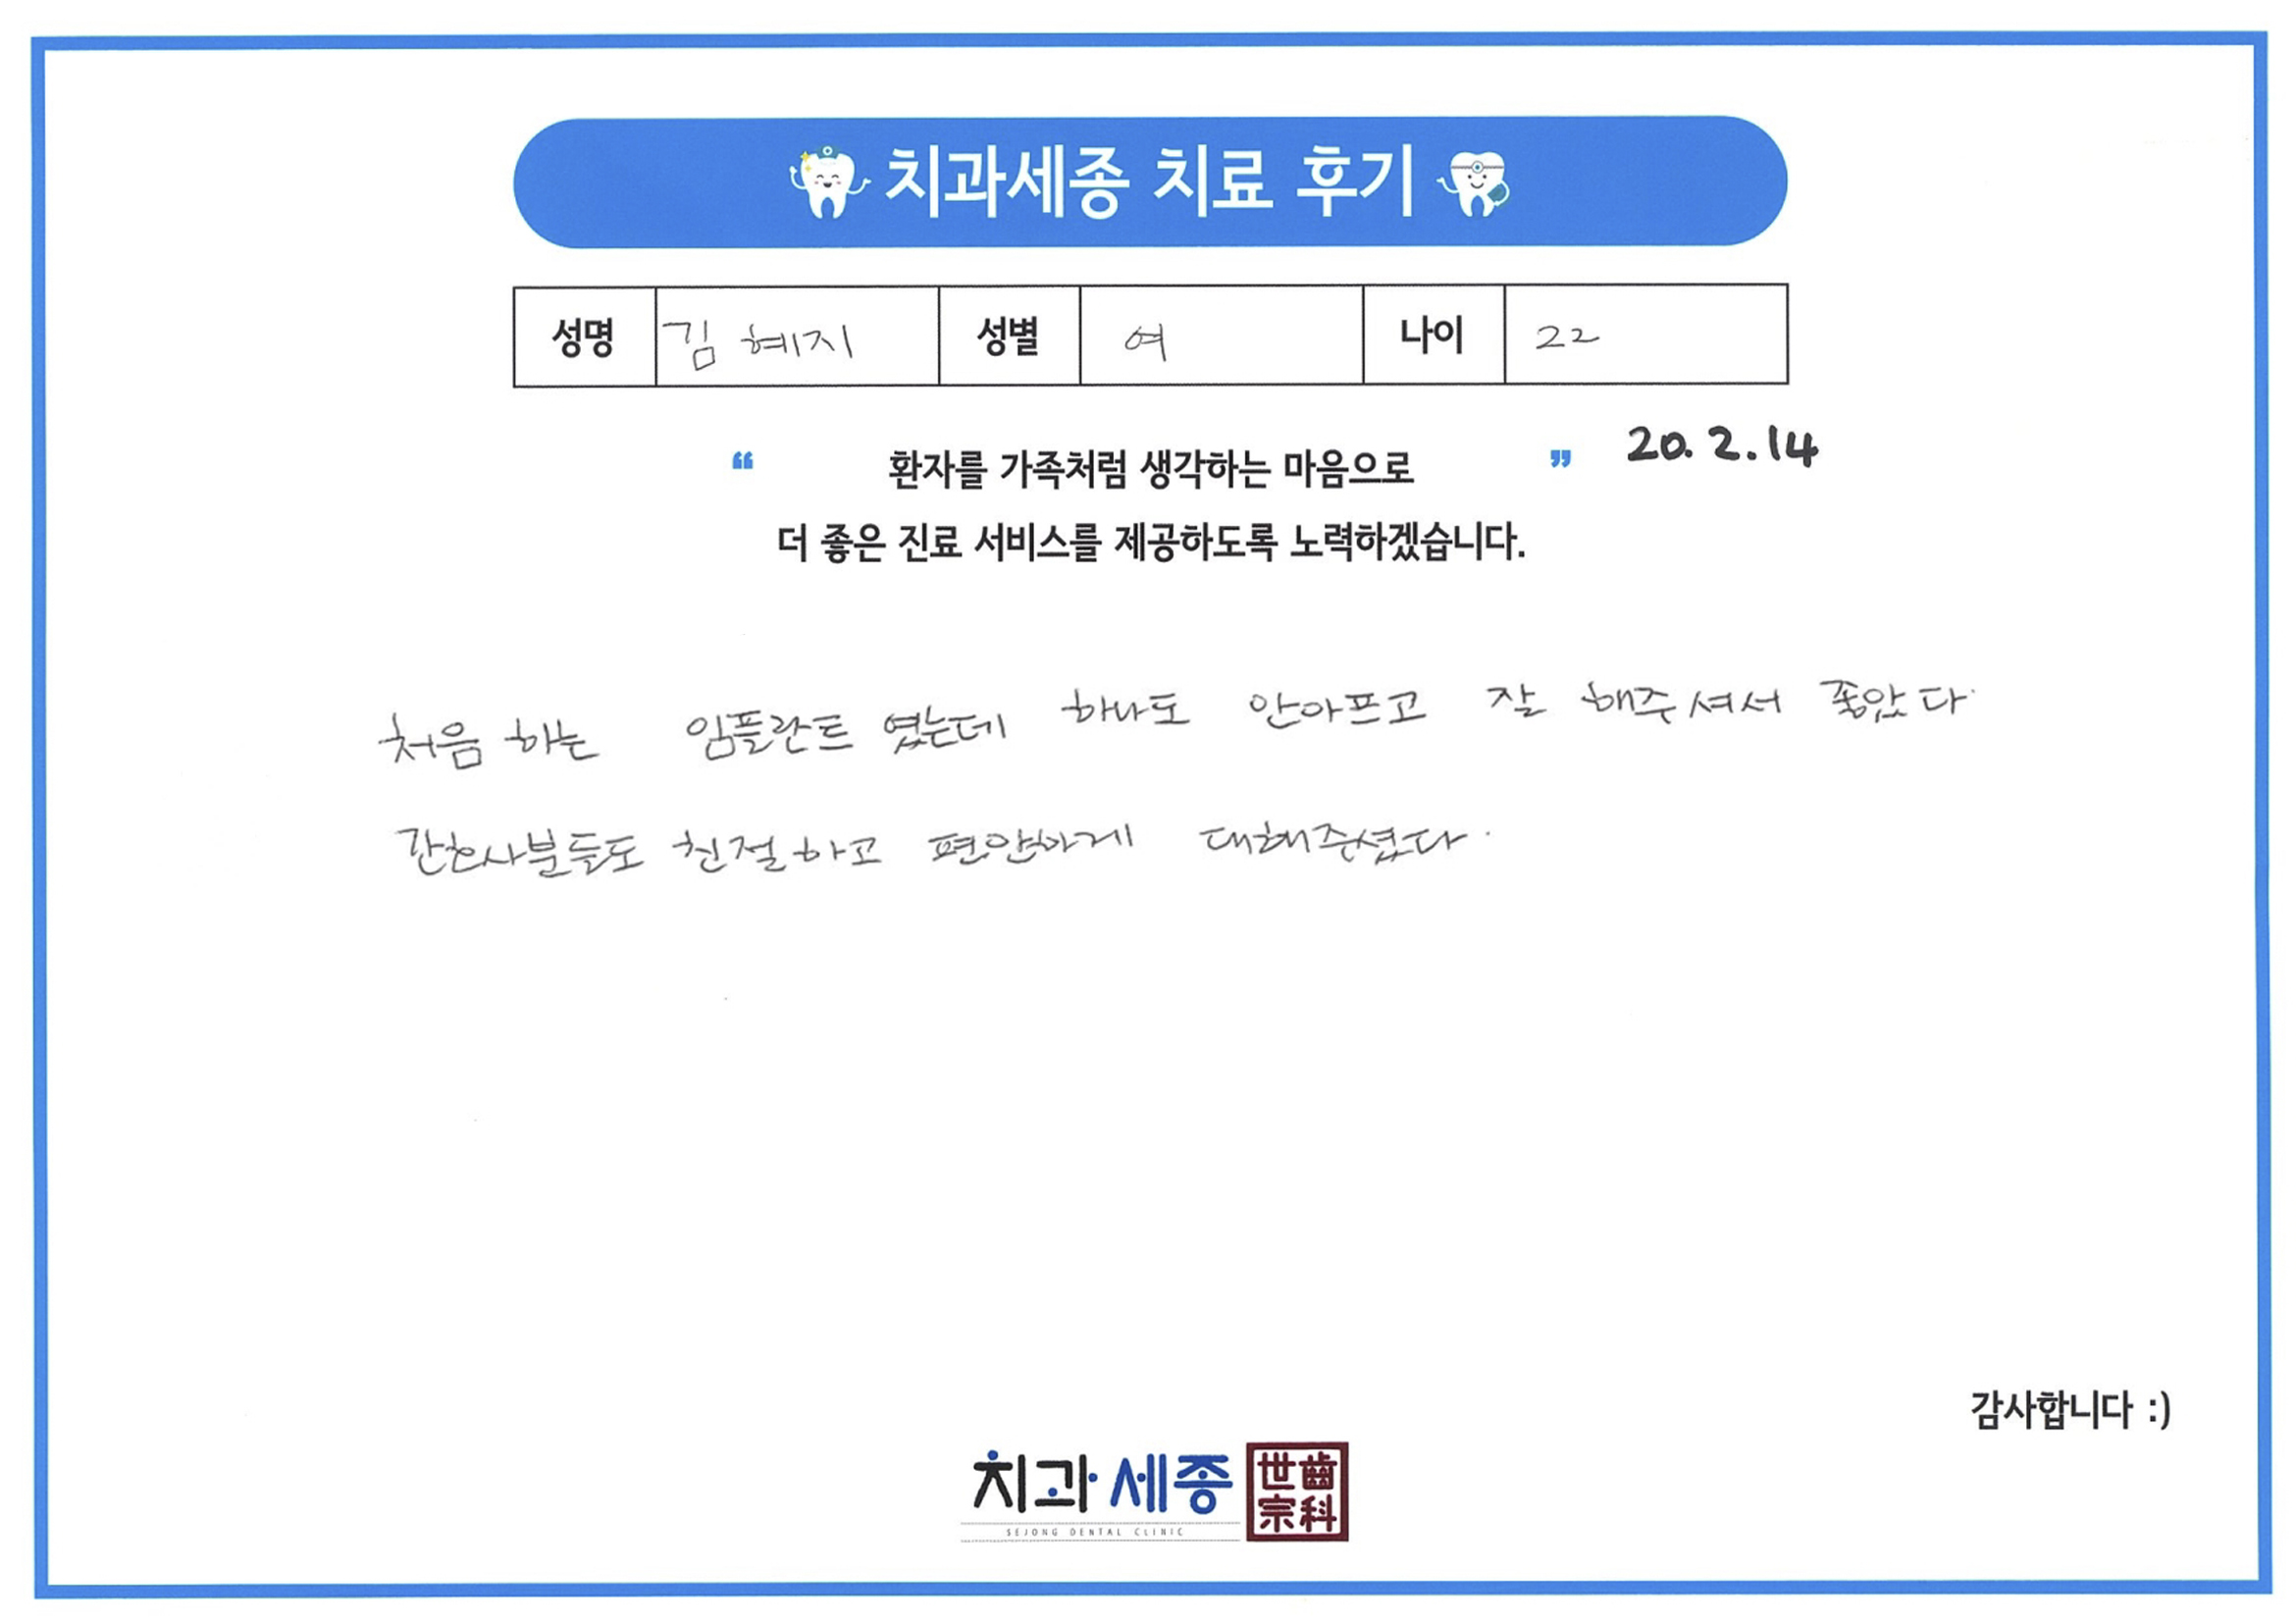 치과세종 치료 후기
성명 김혜지 성별 여 나이 22
20. 2. 14
“ 환자를 가족처럼 생각하는 마음으로 ”
더 좋은 진료 서비스를 제공하도록 노력하겠습니다.
처음 하는 임플란트 였는데 하나도 안아프고 잘 해주셔서 좋았다.
간호사분들도 친절하고 편안하게 대해주셨다.
감사합니다 :)
치과세종 世齒宗科
SEJONG DENTAL CLINIC